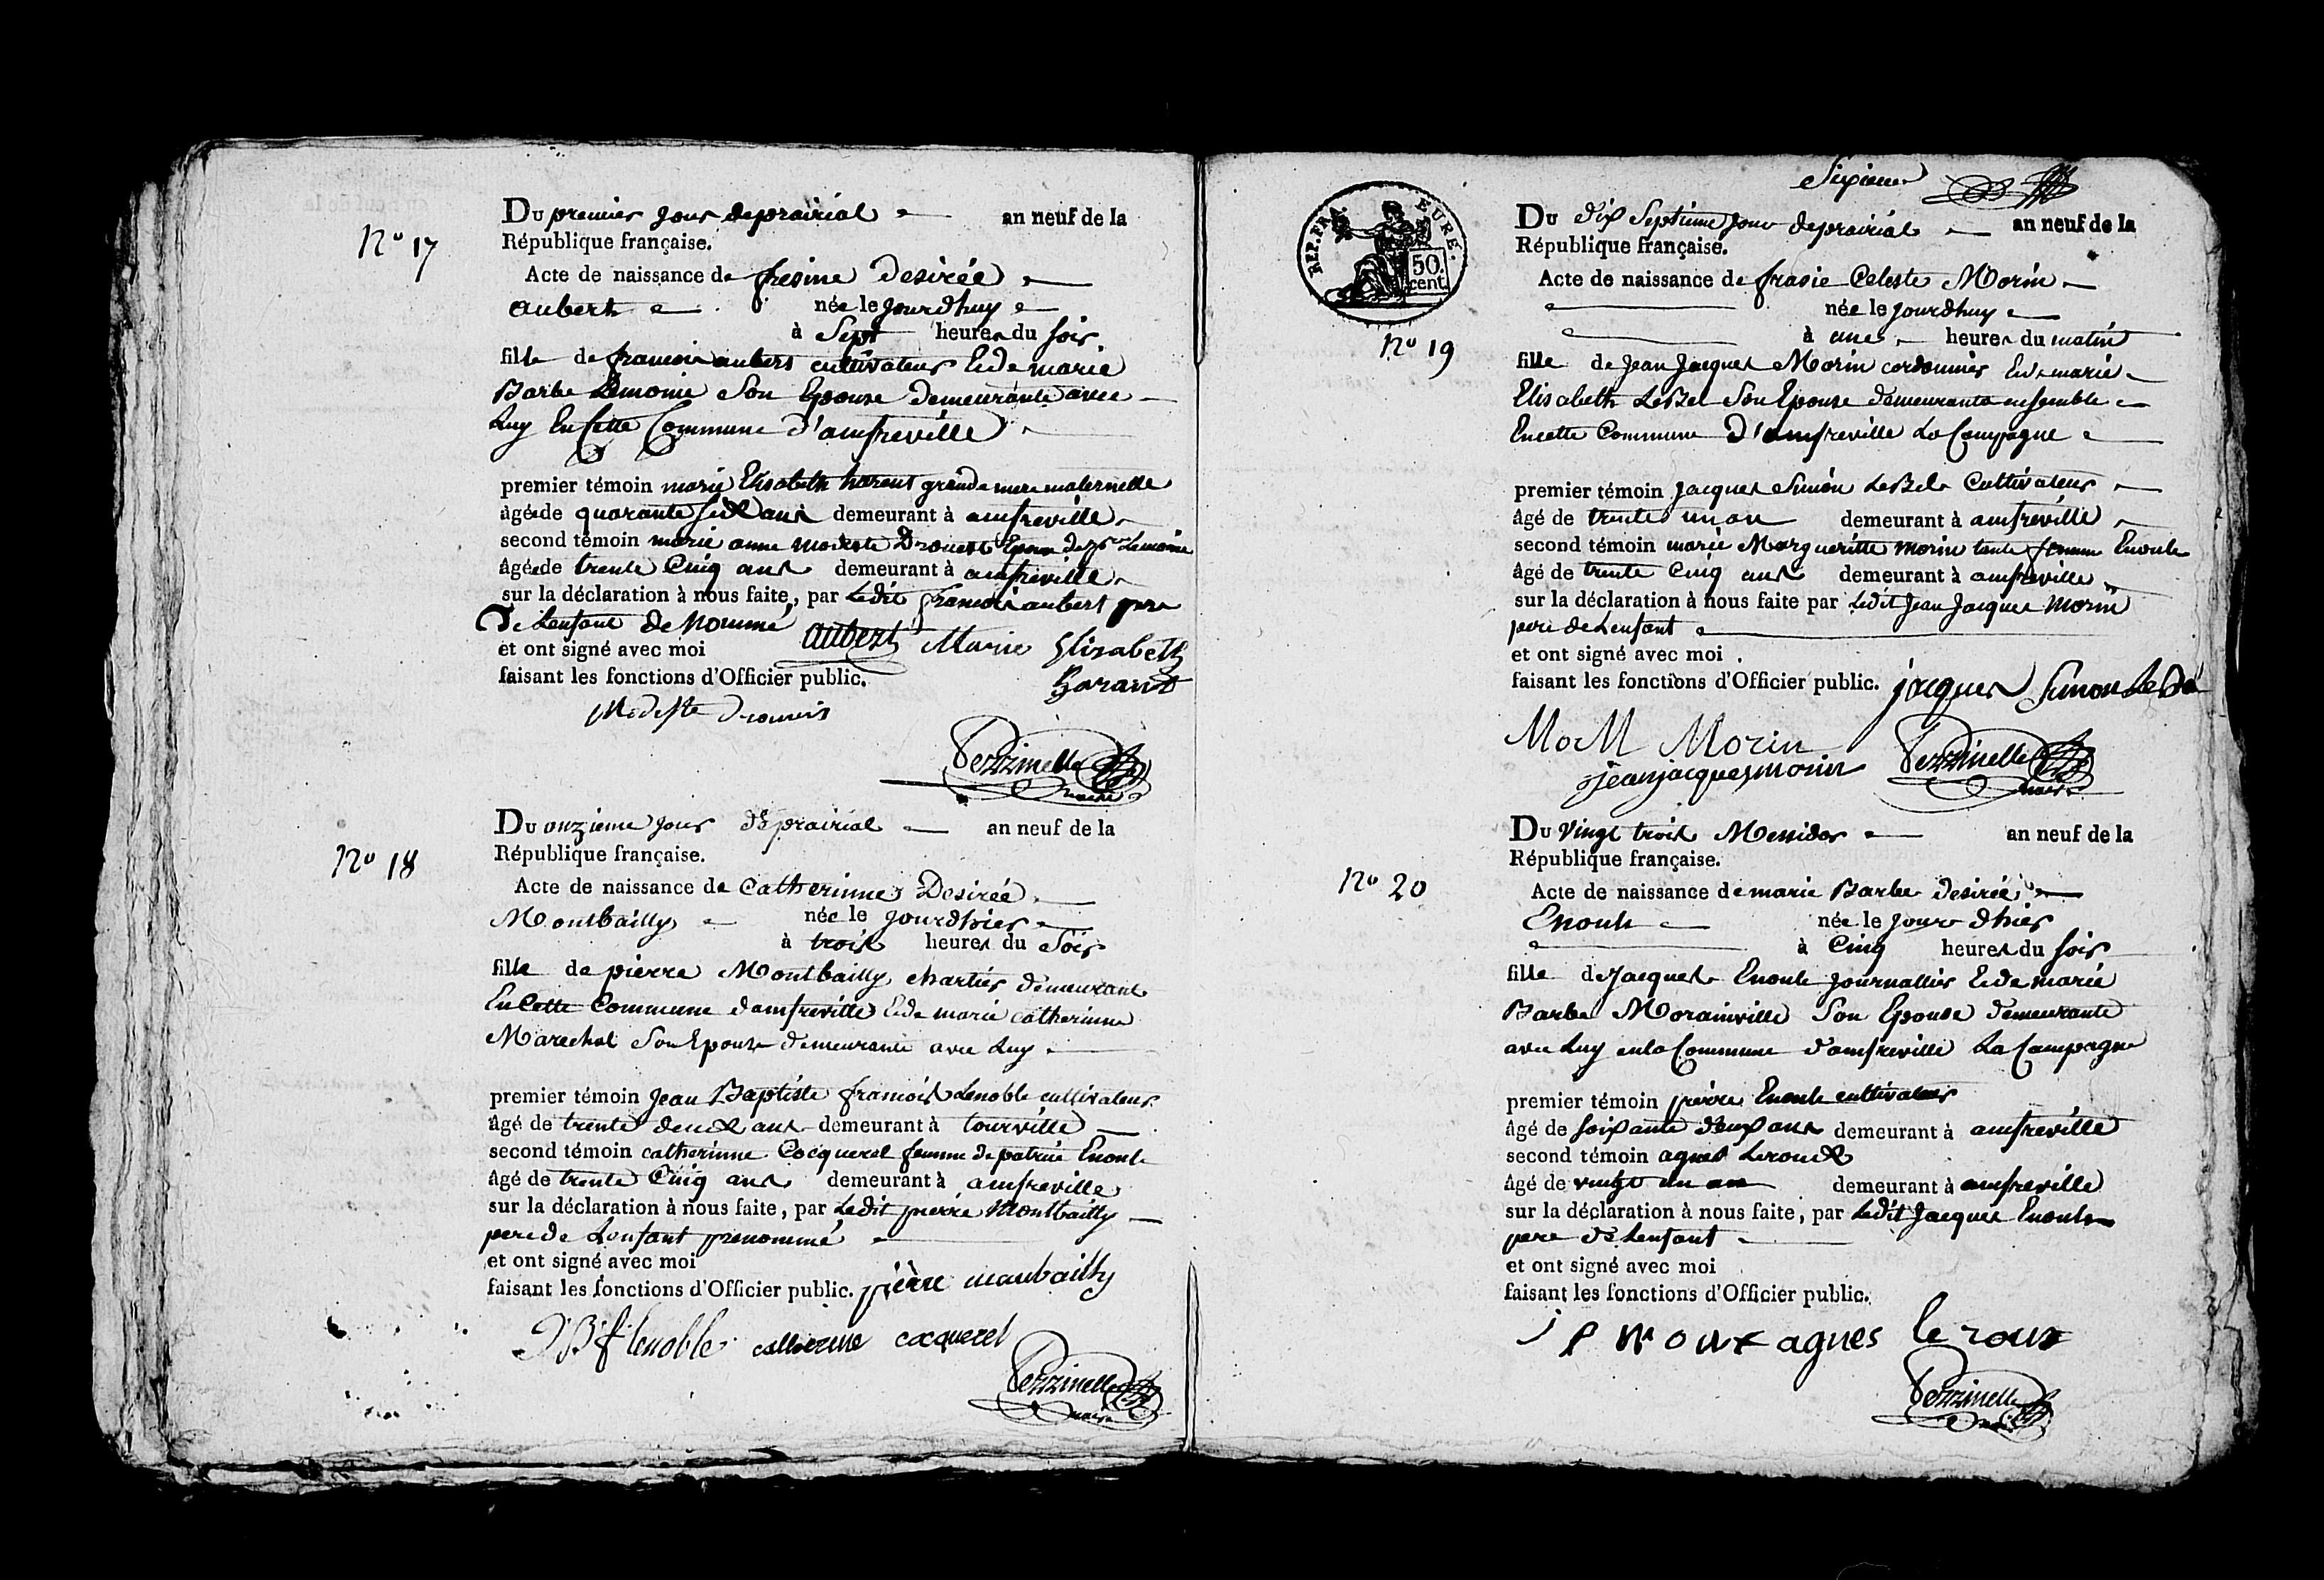 N° 17
Du premier jour de prairial an neuf de la
République française.
Acte de naissance de fresine desirée
aubert née le jourdhuy
à Sept heures du soir
fille de francois aubert cultivateur Et de marie
Barbe Lemoine Son Epouse demeurante avec
Luy En Cette Commune d'amfreville
premier témoin marie Elisabeth harent grande mere maternelle
âgée de quarante six ans demeurant à amfreville
second témoin marie anne modeste Drouet Epouse de Lemoine
âgée de trente Cinq ans demeurant à amfreville
sur la déclaration à nous faite, par Ledit francois aubert pere
De Lenfant de Nommé
et ont signé avec moi
faisant les fonctions d'Officier public.
aubert Marie Elisabeth
harant
Modeste
Perzinelle
maire
N° 18
Du onzieme jour de prairial an neuf de la
République française.
Acte de naissance de Catherinne Desirée
Montbailly née le jourdhier
à trois heures du Soir
fille de pierre Montbailly chartier demeurant
En Cette Commune damfreville Et de marie catherinne
Marechal Son Epouse demeurante avec Luy
premier témoin Jean Baptiste francois Lenoble cultivateur
âgé de trente deux ans demeurant à tourville
second témoin catherinne Cocquerel femme de patrice Enoult
âgé de trente Cinq ans demeurant à amfreville
sur la déclaration à nous faite, par Ledit pierre Montbailly
pere de Lenfant prenommé
et ont signé avec moi
faisant les fonctions d'Officier public.
pierre maubailly
JBf lenoble catherine cocquerel
Perzinelle
maire
Sixieme
REP. FRA. EURE.
50.
cent.
N° 19
Du dix Septieme jour de prairial an neuf de la
République française.
Acte de naissance de frasie Celeste Morin
née le jourdhuy
à une heures du matin
fille de Jean Jacques Morin cordonnier Et de marie
Elisabeth LeBel Son Epouse demeurante ensemble
En cette Commune D'amfreville La Campagne
premier témoin Jacques Simon LeBel Cultivateur
âgé de trente un an demeurant à amfreville
second témoin marie Margueritte morin tante femme Enoult
âgé de trente Cinq ans demeurant à amfreville
sur la déclaration à nous faite par Ledit Jean Jacques Morin
pere de Lenfant
et ont signé avec moi
faisant les fonctions d'Officier public.
jacques Simon
M Morin
jean jacques morin
Perzinelle
maire
N° 20
Du Vingt trois Messidor an neuf de la
République française.
Acte de naissance de marie Barbe desirée
Enoult née le jour dhier
à Cinq heures du soir
fille de Jacques Enoult journallier Et de marie
Barbe Morainville Son Epouse demeurante
avec Luy en la Commune d'amfreville La Campagne
premier témoin pierre Enoult cultivateur
âgé de soixante deux ans demeurant à amfreville
second témoin agnes Leroux
âgé de vingt un an demeurant à amfreville
sur la déclaration à nous faite, par Ledit Jacques Enoult
pere de Lenfant
et ont signé avec moi
faisant les fonctions d'Officier public.
agnes le roux
Perzinelle
maire